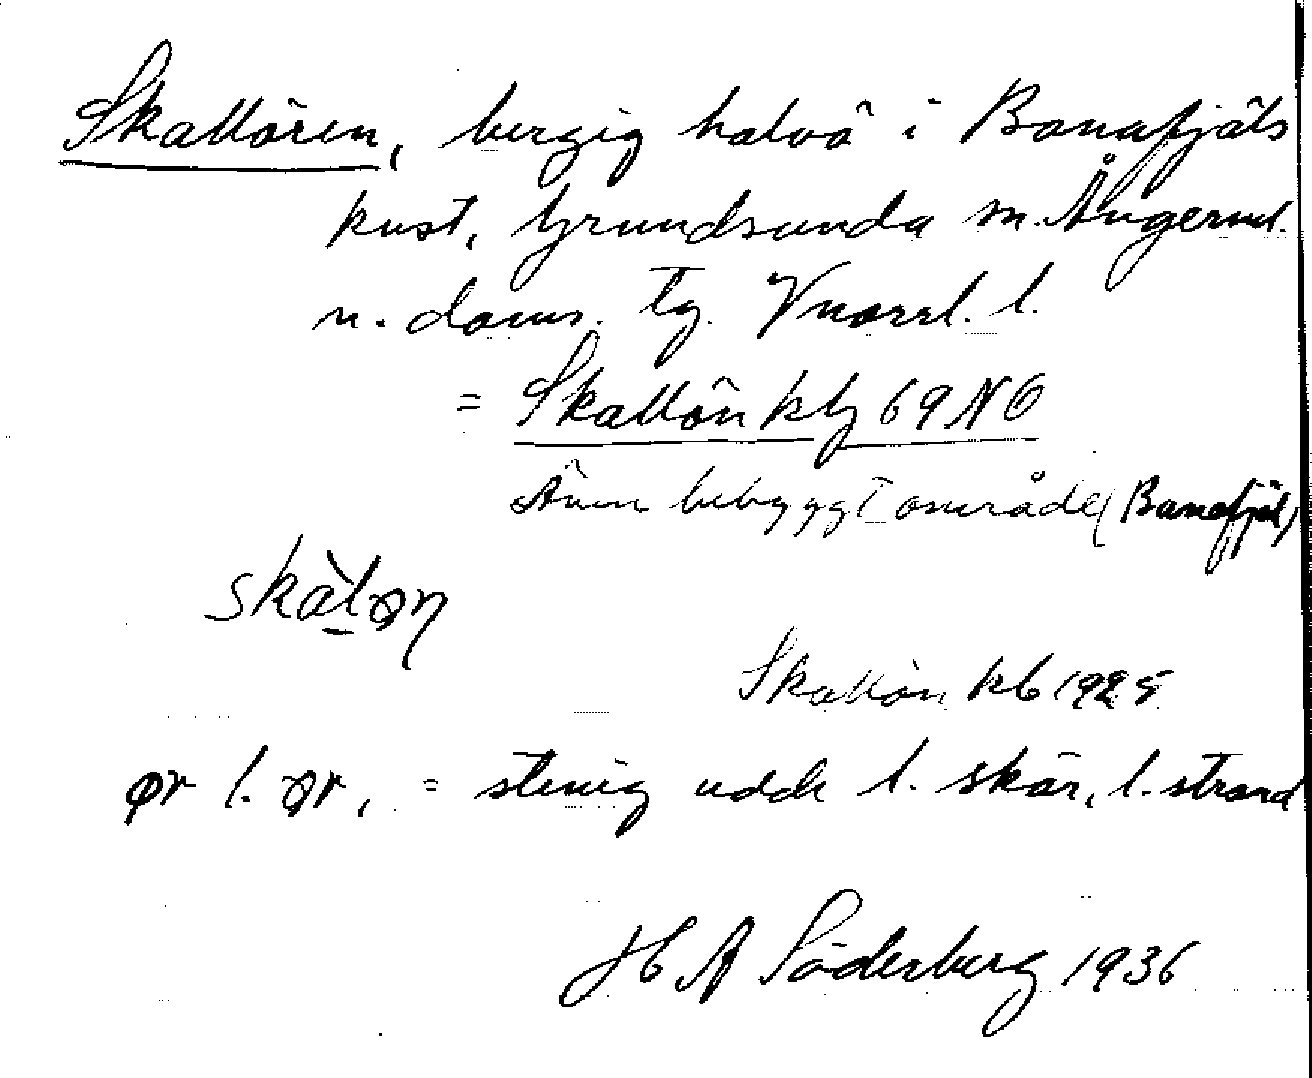 Skallören, bergig halvö i Banafjäls
kust, Grundsunda sn. Ångerml.
n. doms. tg. Vnorrl. l.
= Skallön kbl 69 NO
Även bebyggt område (Banafjäl)
Skallön kb 1925
ør l. ør, = stenig udde l. skär, l. strand
H A Söderberg 1936